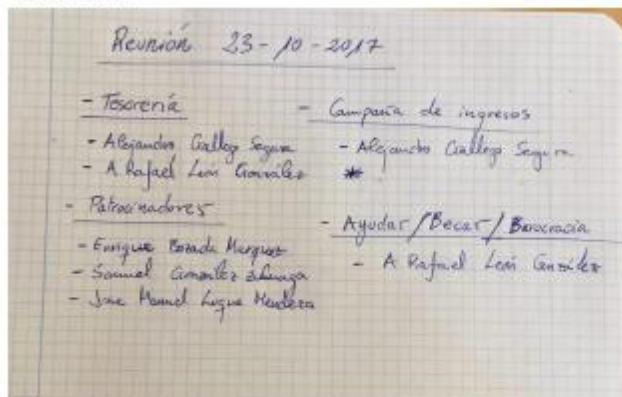 Reunión 23-10-2017
- Tesorería
- Alejandro Gallego Segura
- A. Rafael León González
- Patrocinadores
- Enrique Márquez
- Samuel González
- Jose Manuel Luque Mendoza
- Campaña de ingresos
- Alejandro Gallego Segura
*
- Ayudar/Becar/Burocracia
- A Rafael León González